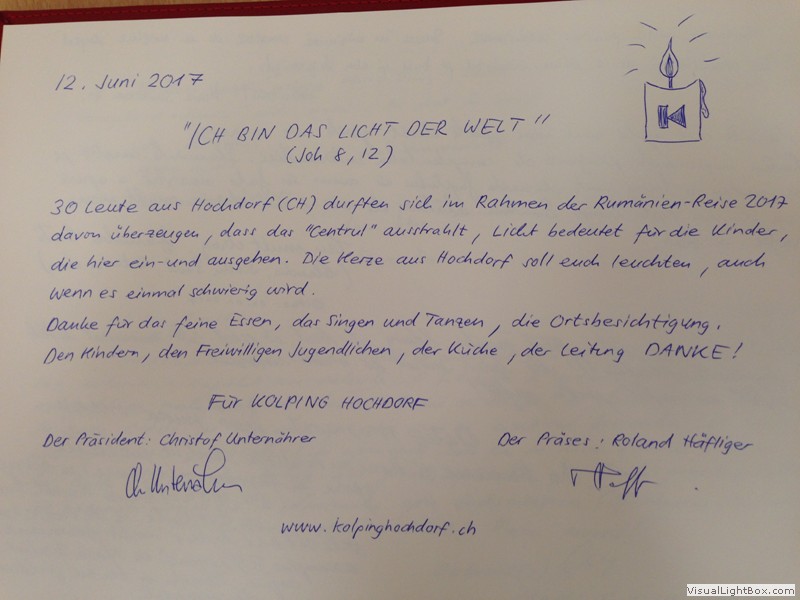 12. Juni 2017
"ICH BIN DAS LICHT DER WELT"
(Joh 8,12)
30 Leute aus Hochdorf (CH) durften sich im Rahmen der Rumänien-Reise 2017
davon überzeugen, dass das "Centrul" ausstrahlt, Licht bedeutet für die Kinder,
die hier ein- und ausgehen. Die Kerze aus Hochdorf soll euch leuchten, auch
wenn es einmal schwierig wird.
Danke für das feine Essen, das Singen und Tanzen, die Ortsbesichtigung.
Den Kindern, den Freiwilligen Jugendlichen, der Küche, der Leitung DANKE!
Für KOLPING HOCHDORF
Der Präsident: Christof Unternährer
Der Präses: Roland Häfliger
www.kolpinghochdorf.ch
VisualLightBox.com